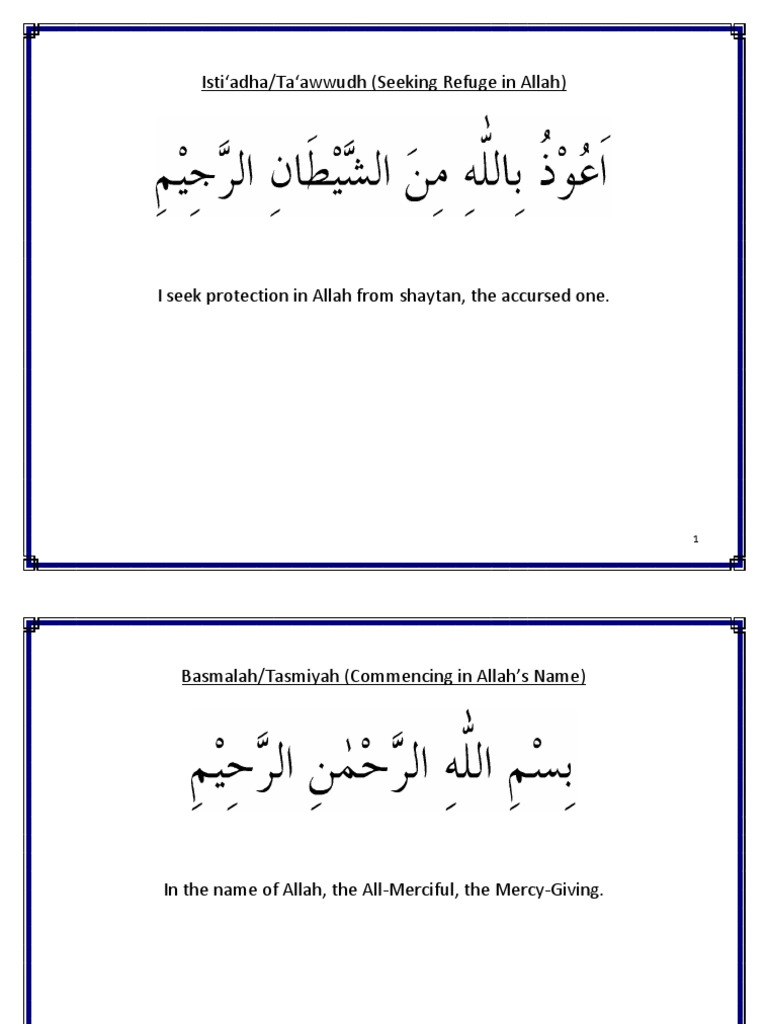 Isti‘adha/Ta‘awwudh (Seeking Refuge in Allah)
اَعُوْذُ بِاللّٰهِ مِنَ الشَّيْطَانِ الرَّجِيْمِ
I seek protection in Allah from shaytan, the accursed one.
1
Basmalah/Tasmiyah (Commencing in Allah’s Name)
بِسْمِ اللّٰهِ الرَّحْمٰنِ الرَّحِيْمِ
In the name of Allah, the All-Merciful, the Mercy-Giving.